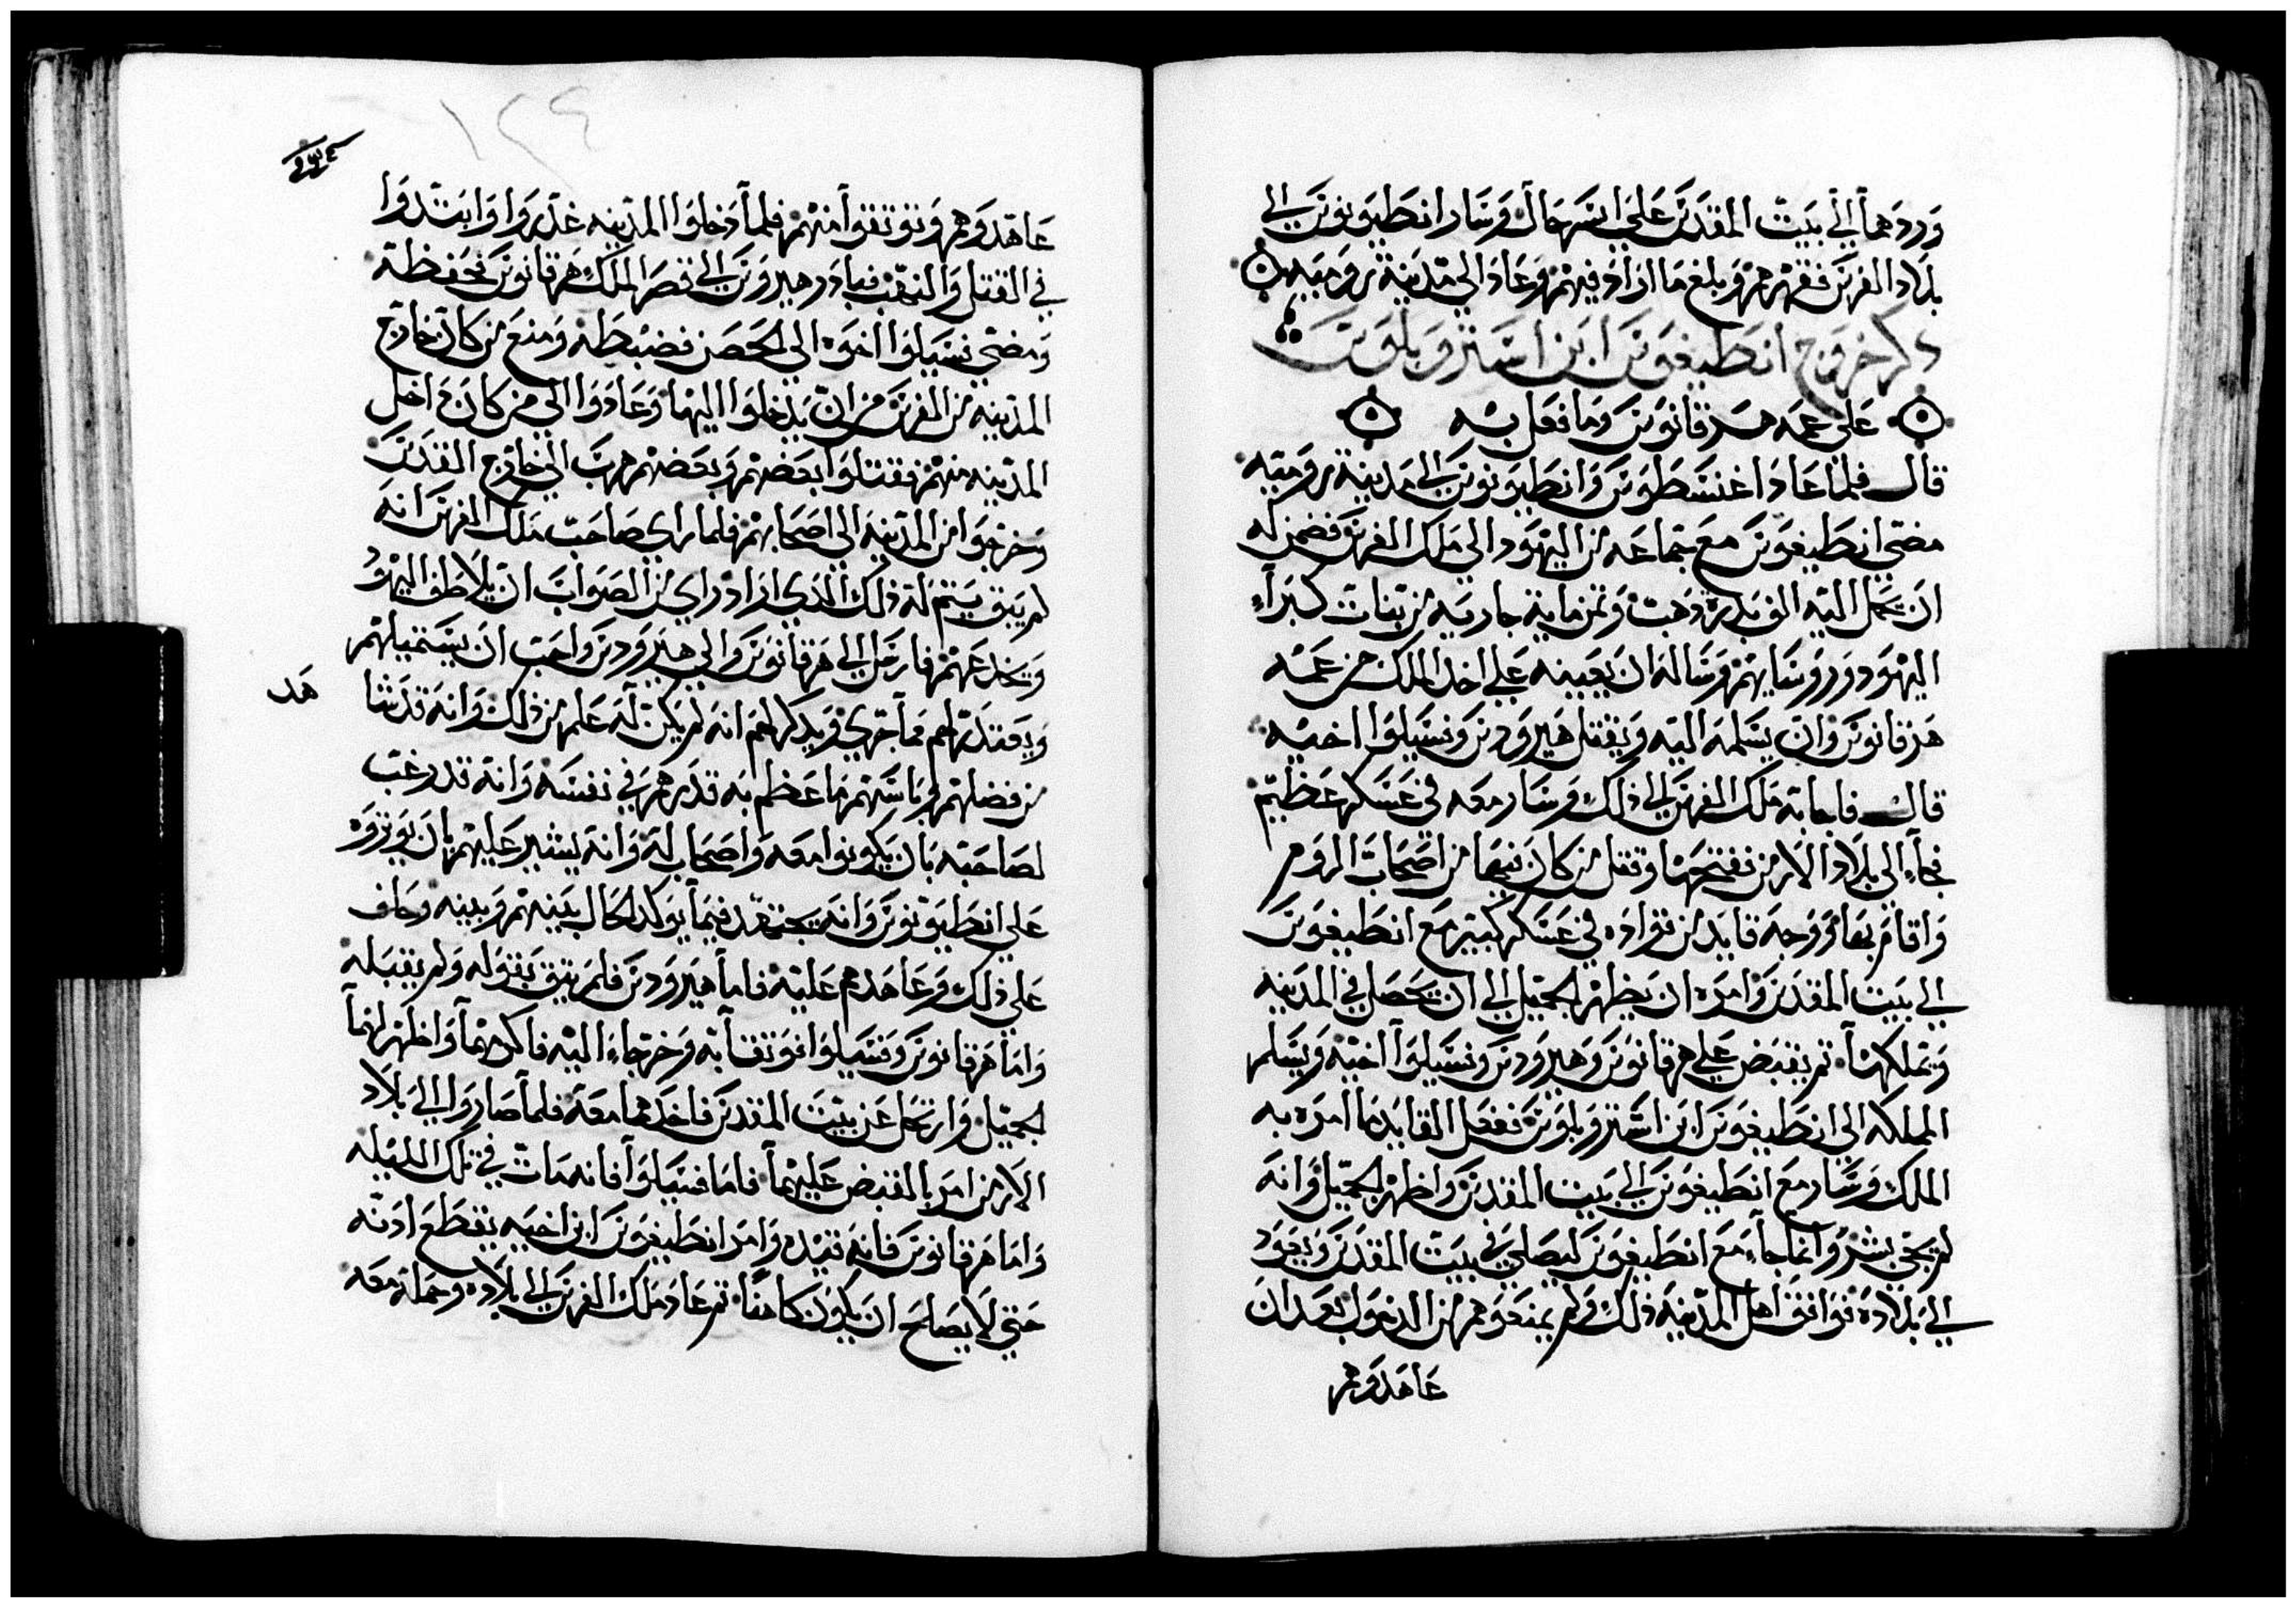 وردهما الي بيت المقدس علي اسر حال وسار انطيونوس الي
بلاد الفرس فقهرهم وبلغ ما اراد فيهم وعاد الي مدينة رومية
ذكر خروج انطيغوس ابن استروبلوس
علي عمه هرقانوس وما فعل به
قال فلما عاد اغسطوس وانطيونوس الي مدينة رومية
مضي انطيغوس مع جماعه من اليهود الي ملك الفرس فضمن له
ان يحمل اليه الف بدرة ذهب وثمن ماية جارية من بنات كبراء
اليهود وروسايهم وساله ان يعينه علي اخد الملك من عمه
هرقانوس وان يسلمه اليه ويقتل هيرودس وفسيلوا اخيه
قال فاجابه ملك الفرس الي ذلك وسار معه في عسكر عظيم
فجاء الي بلاد الارمن ففتحها وقتل من كان فيها من اصحاب الروم
واقام بها ووجه قايد من قواده في عسكر كبير مع انطيغوس
الي بيت المقدس وامره ان يظهر الجميل الي ان يحصل في المدينه
ويملكها ثم يقبض علي هرقانوس وهيرودس وفسيلوا اخيه ويسلم
المملكه الي انطيغوس ابن استروبلوس ففعل القايد ما امره به
الملك وسار مع انطيغوس الي بيت المقدس واظهر الجميل وانه
لم يجي بشر وانما جاء مع انطيغوس ليصلي في بيت المقدس ويعود
الي بلاده فوافق اهل المدينه ذلك ولم يمنعوهم من الدخول بعد ان
عاهدوهم
١٢٤
عاهدوهم وتوتقوا منهم فلما دخلوا المدينه غدروا وابتدوا
في القتل والنهب فبادر هيرودس الي قصر الملك هرقانوس فحفظه
ومضي فسيلوا اخوه الي الحصن فضبطه ومنع من كان خارج
المدينه من الفرس من ان يدخلوا اليها وعادوا الي من كان داخل
المدينه منهم فقتلوا بعضهم وبعضهم هرب الي خارج القدس
وخرجوا من المدينه الي اصحابهم فلما راي صاحب ملك الفرس انه
لم يبق يتم له ذلك الذي اراد راي من الصواب ان يلاطف اليهود
ويخدعهم فارسل الي هرقانوس والي هيرودس واحب ان يستميلهم
ويعتدر لهم مما جري ويدكر لهم انه لم يكن له علم من ذلك وانه قد شا هد
من فضلهم وباسهم ما عظم به قدرهم في نفسه وانه قد رغب
لصاحبه بان يكونوا معه واصحاب له وانه يشير عليهم بان يوتروه
علي انطيونوس وانه يجتهد فيما يوكد الحال بينهم وبينه وحلف
علي ذلك وعاهدهم عليه فاما هيرودس فلم يتق بقوله ولم يقبله
واما هرقانوس وفسيلوا فوتقا به وخرجا اليه فاكرمهما واظهر لهما
الجميل وارتحل عن بيت المقدس فاخدهما معه فلما صاروا الي بلاد
الارمن امر بالقبض عليهما فاما فسيلوا فانه مات في تلك الليله
واما هرقانوس فانه قيده وامر انطيغوس ابن اخيه بقطع ادنه
حتي لا يصلح ان يكون كاهنا ثم عاد ملك الفرس الي بلاده وحمله معه